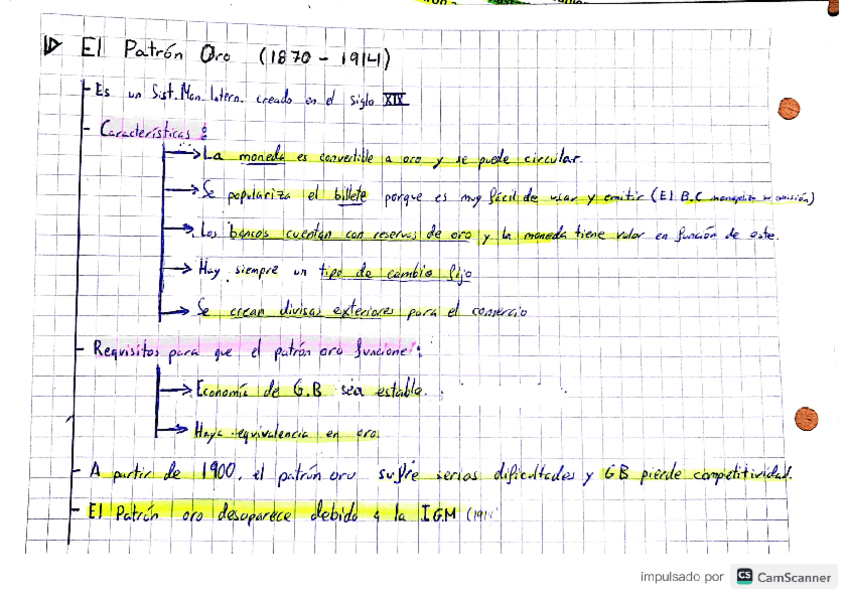 El Patrón Oro (1870 - 1914)
- Es un Sist. Mon. Intern. creado en el siglo XIX
- Características:
→ La moneda es convertible a oro y se puede circular.
→ Se populariza el billete porque es muy fácil de usar y emitir (El B.C monopoliza su emisión)
→ Los bancos cuentan con reservas de oro y la moneda tiene valor en función de este.
→ Hay siempre un tipo de cambio fijo
→ Se crean divisas exteriores para el comercio
- Requisitos para que el patrón oro funcione:
→ Economía de G.B sea estable.
→ Haya equivalencia en oro.
- A partir de 1900, el patrón oro sufre serias dificultades y GB pierde competitividad.
- El Patrón oro desaparece debido a la IGM (191
impulsado por CS CamScanner